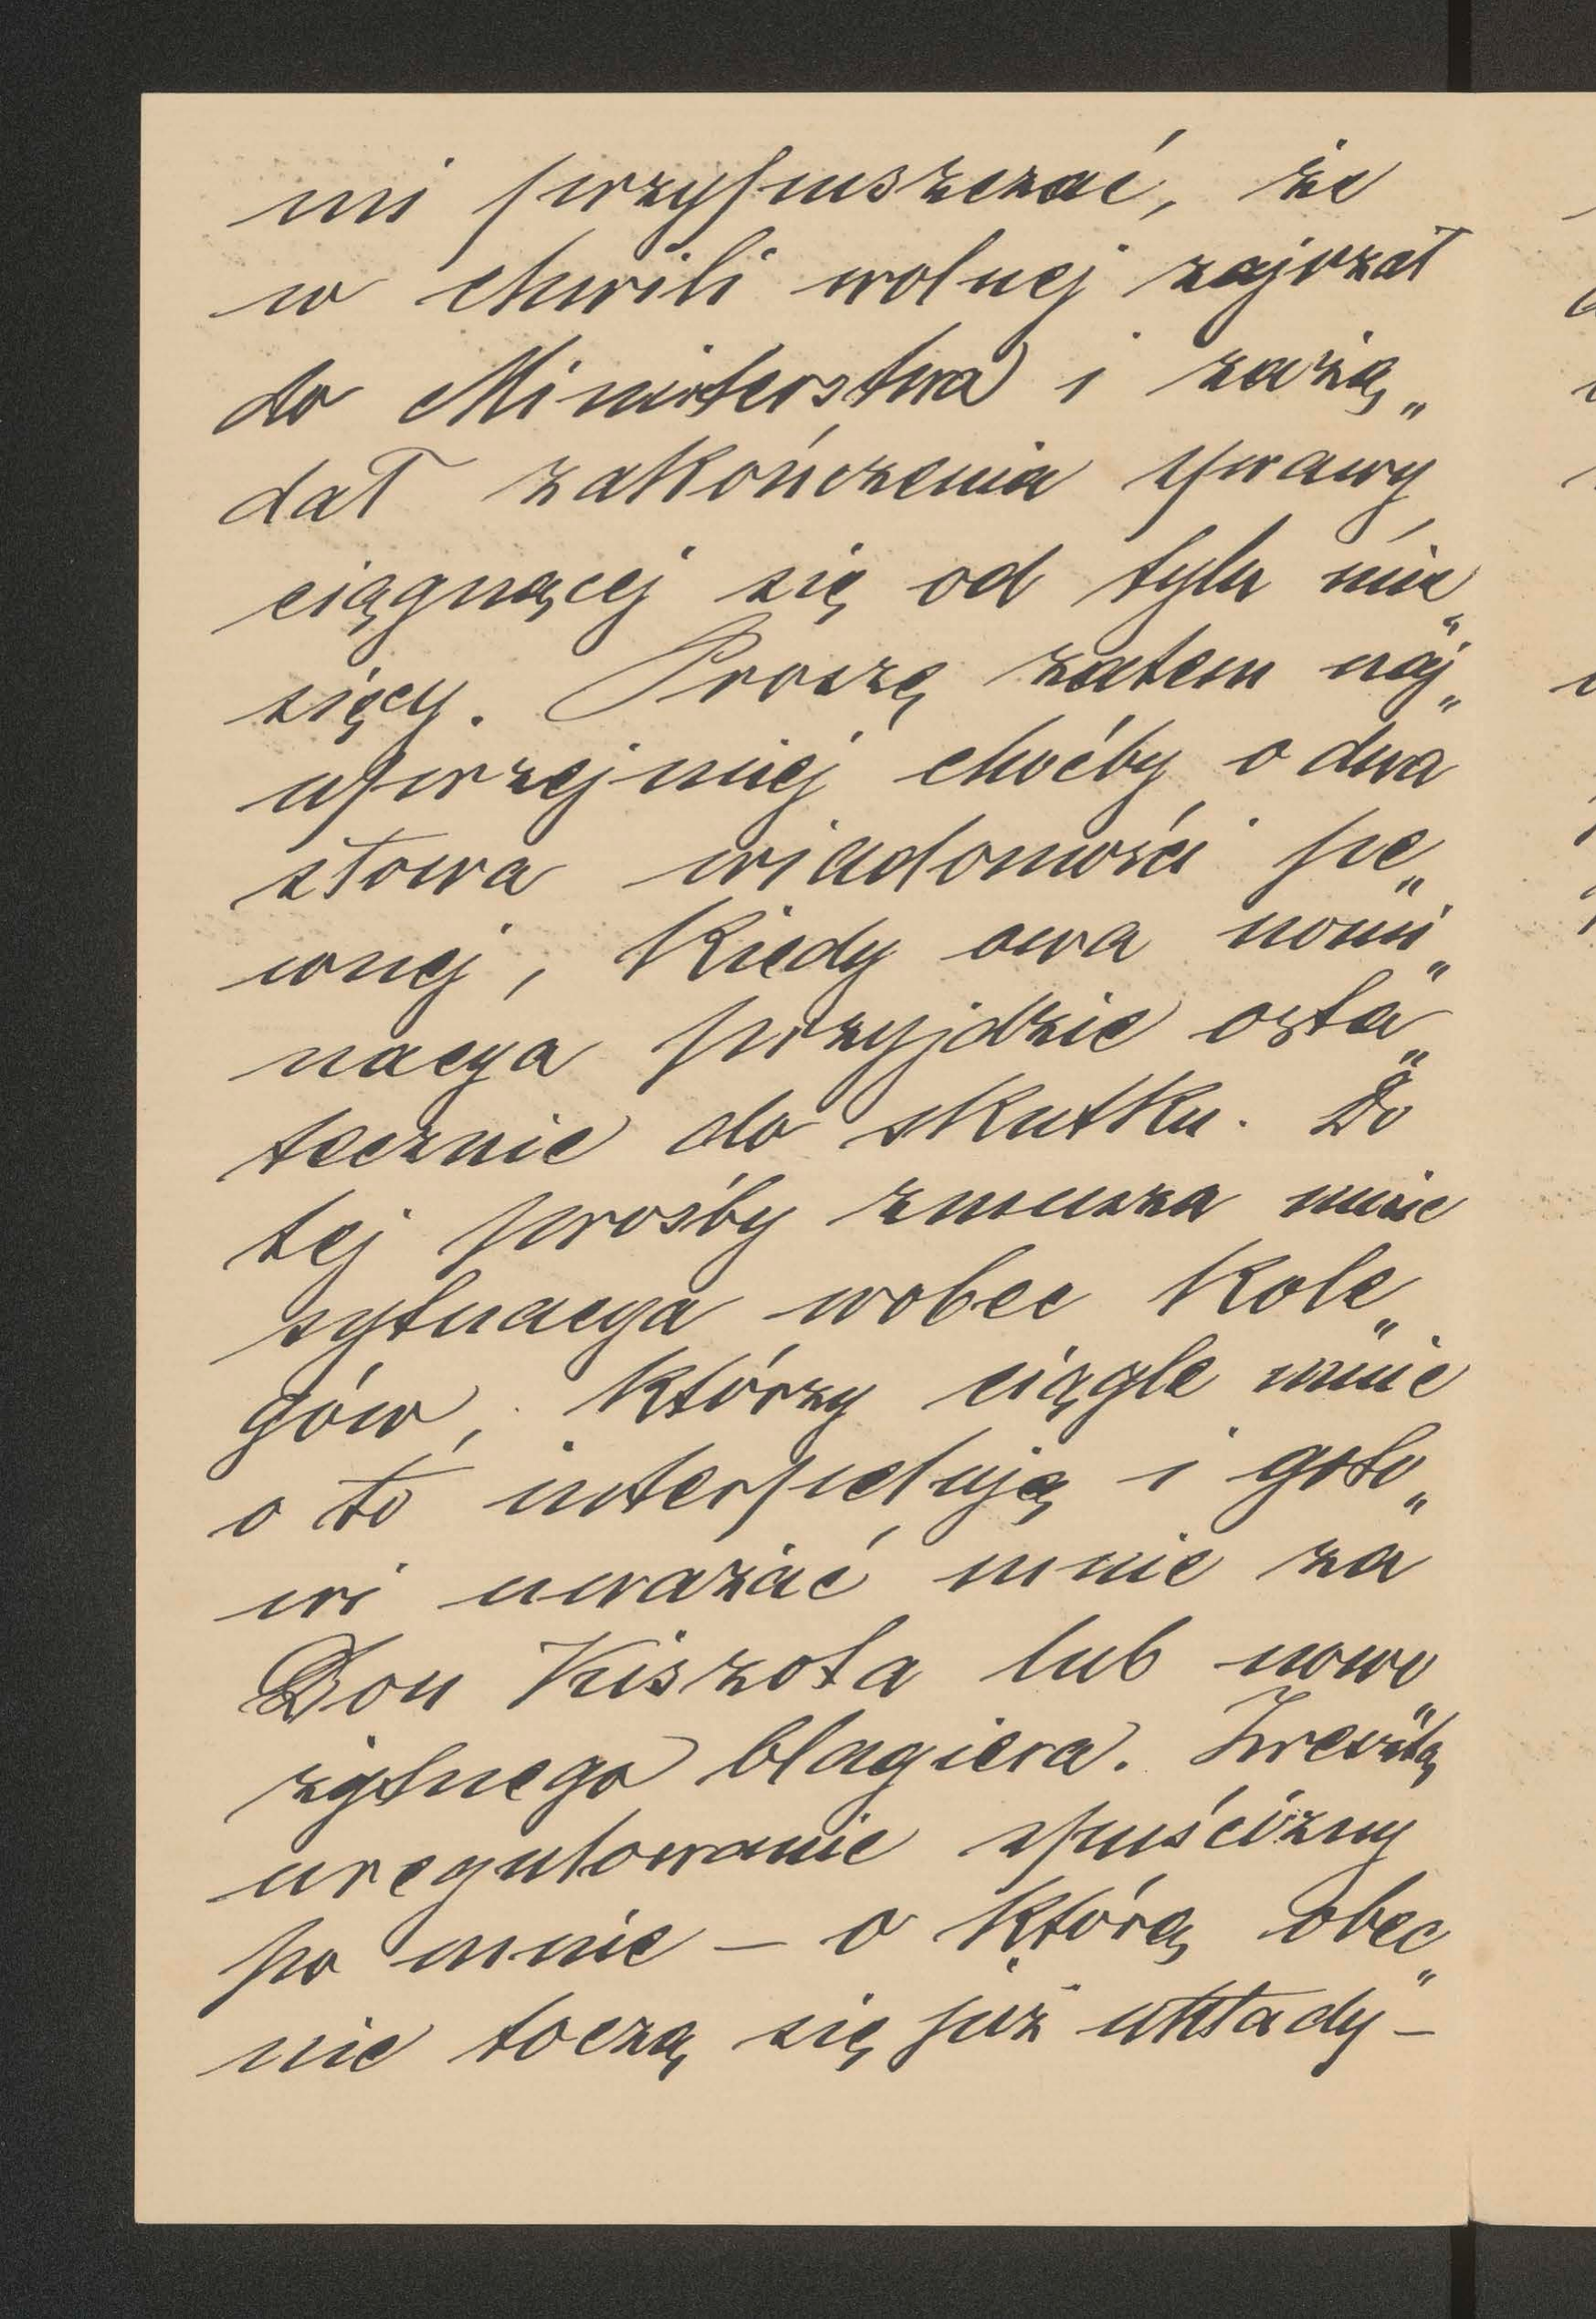 mi przypuszczać, że
w chwili wolnej zajrzał
do Ministerstwa i zażą„
dał zakończenia sprawy
ciągnącej się od tylu mie„
sięcy. Proszę zatem naj„
uprzejmiej choćby o dwa
słowa wiadomości pe„
wnej, kiedy owa nomi„
nacya przyjdzie osta„
tecznie do skutku. Do
tej prośby zmusza mnie
sytuacya wobec kole„
gów, którzy ciągle mnie
o to interpelują i goto„
wi uważać mnie za
Don Kiszota lub nowo„
żytnego blagiera. Zresztą
uregulowanie spuścizny
po mnie – o którą obec„
nie toczą się już układy –